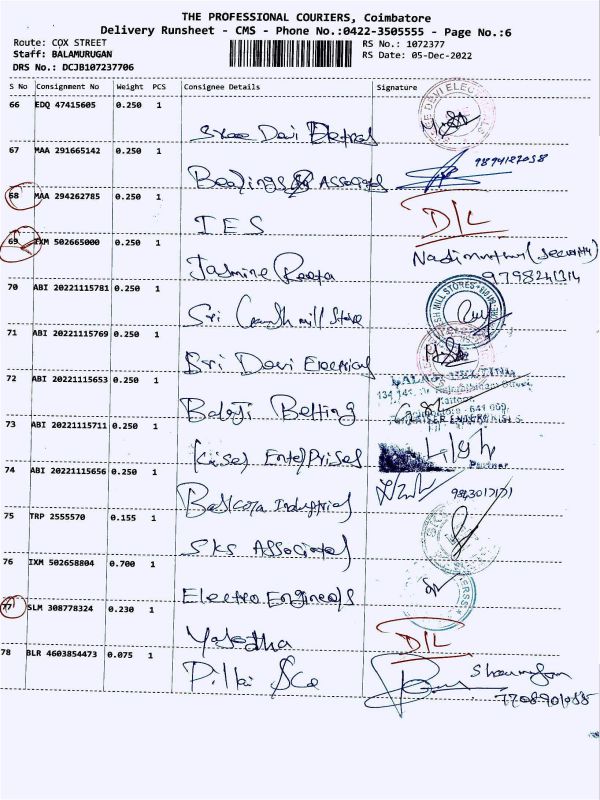 THE PROFESSIONAL COURIERS, Coimbatore
Delivery Runsheet - CMS - Phone No.:0422-3505555 - Page No.:6
Route: COX STREET RS No.: 1072377
Staff: BALAMURUGAN RS Date: 05-Dec-2022
DRS No.: DCJB107237706
S No Consignment No Weight PCS Consignee Details Signature
66 EDQ 47415605 0.250 1
Sree Devi
67 MAA 291665142 0.250 1
9894127058
Bearings & Associates
68 MAA 294262785 0.250 1 D/L
IES
69 IXM 502665000 0.250 1 (Security)
Jasmine 9798241314
70 ABI 20221115781 0.250 1
Sri mill Store
71 ABI 20221115769 0.250 1
Sri Devi Electrical
72 ABI 20221115653 0.250 1
Balaji Belting
73 ABI 20221115711 0.250 1
Enterprises
74 ABI 20221115656 0.250 1
Industries
75 TRP 2555570 0.155 1
SKS Associates
76 IXM 502658804 0.700 1
Electro Engineers
77 SLM 308778324 0.230 1 D/L
Yasodha
78 BLR 4603854473 0.075 1
Pillai & Co
7708901085